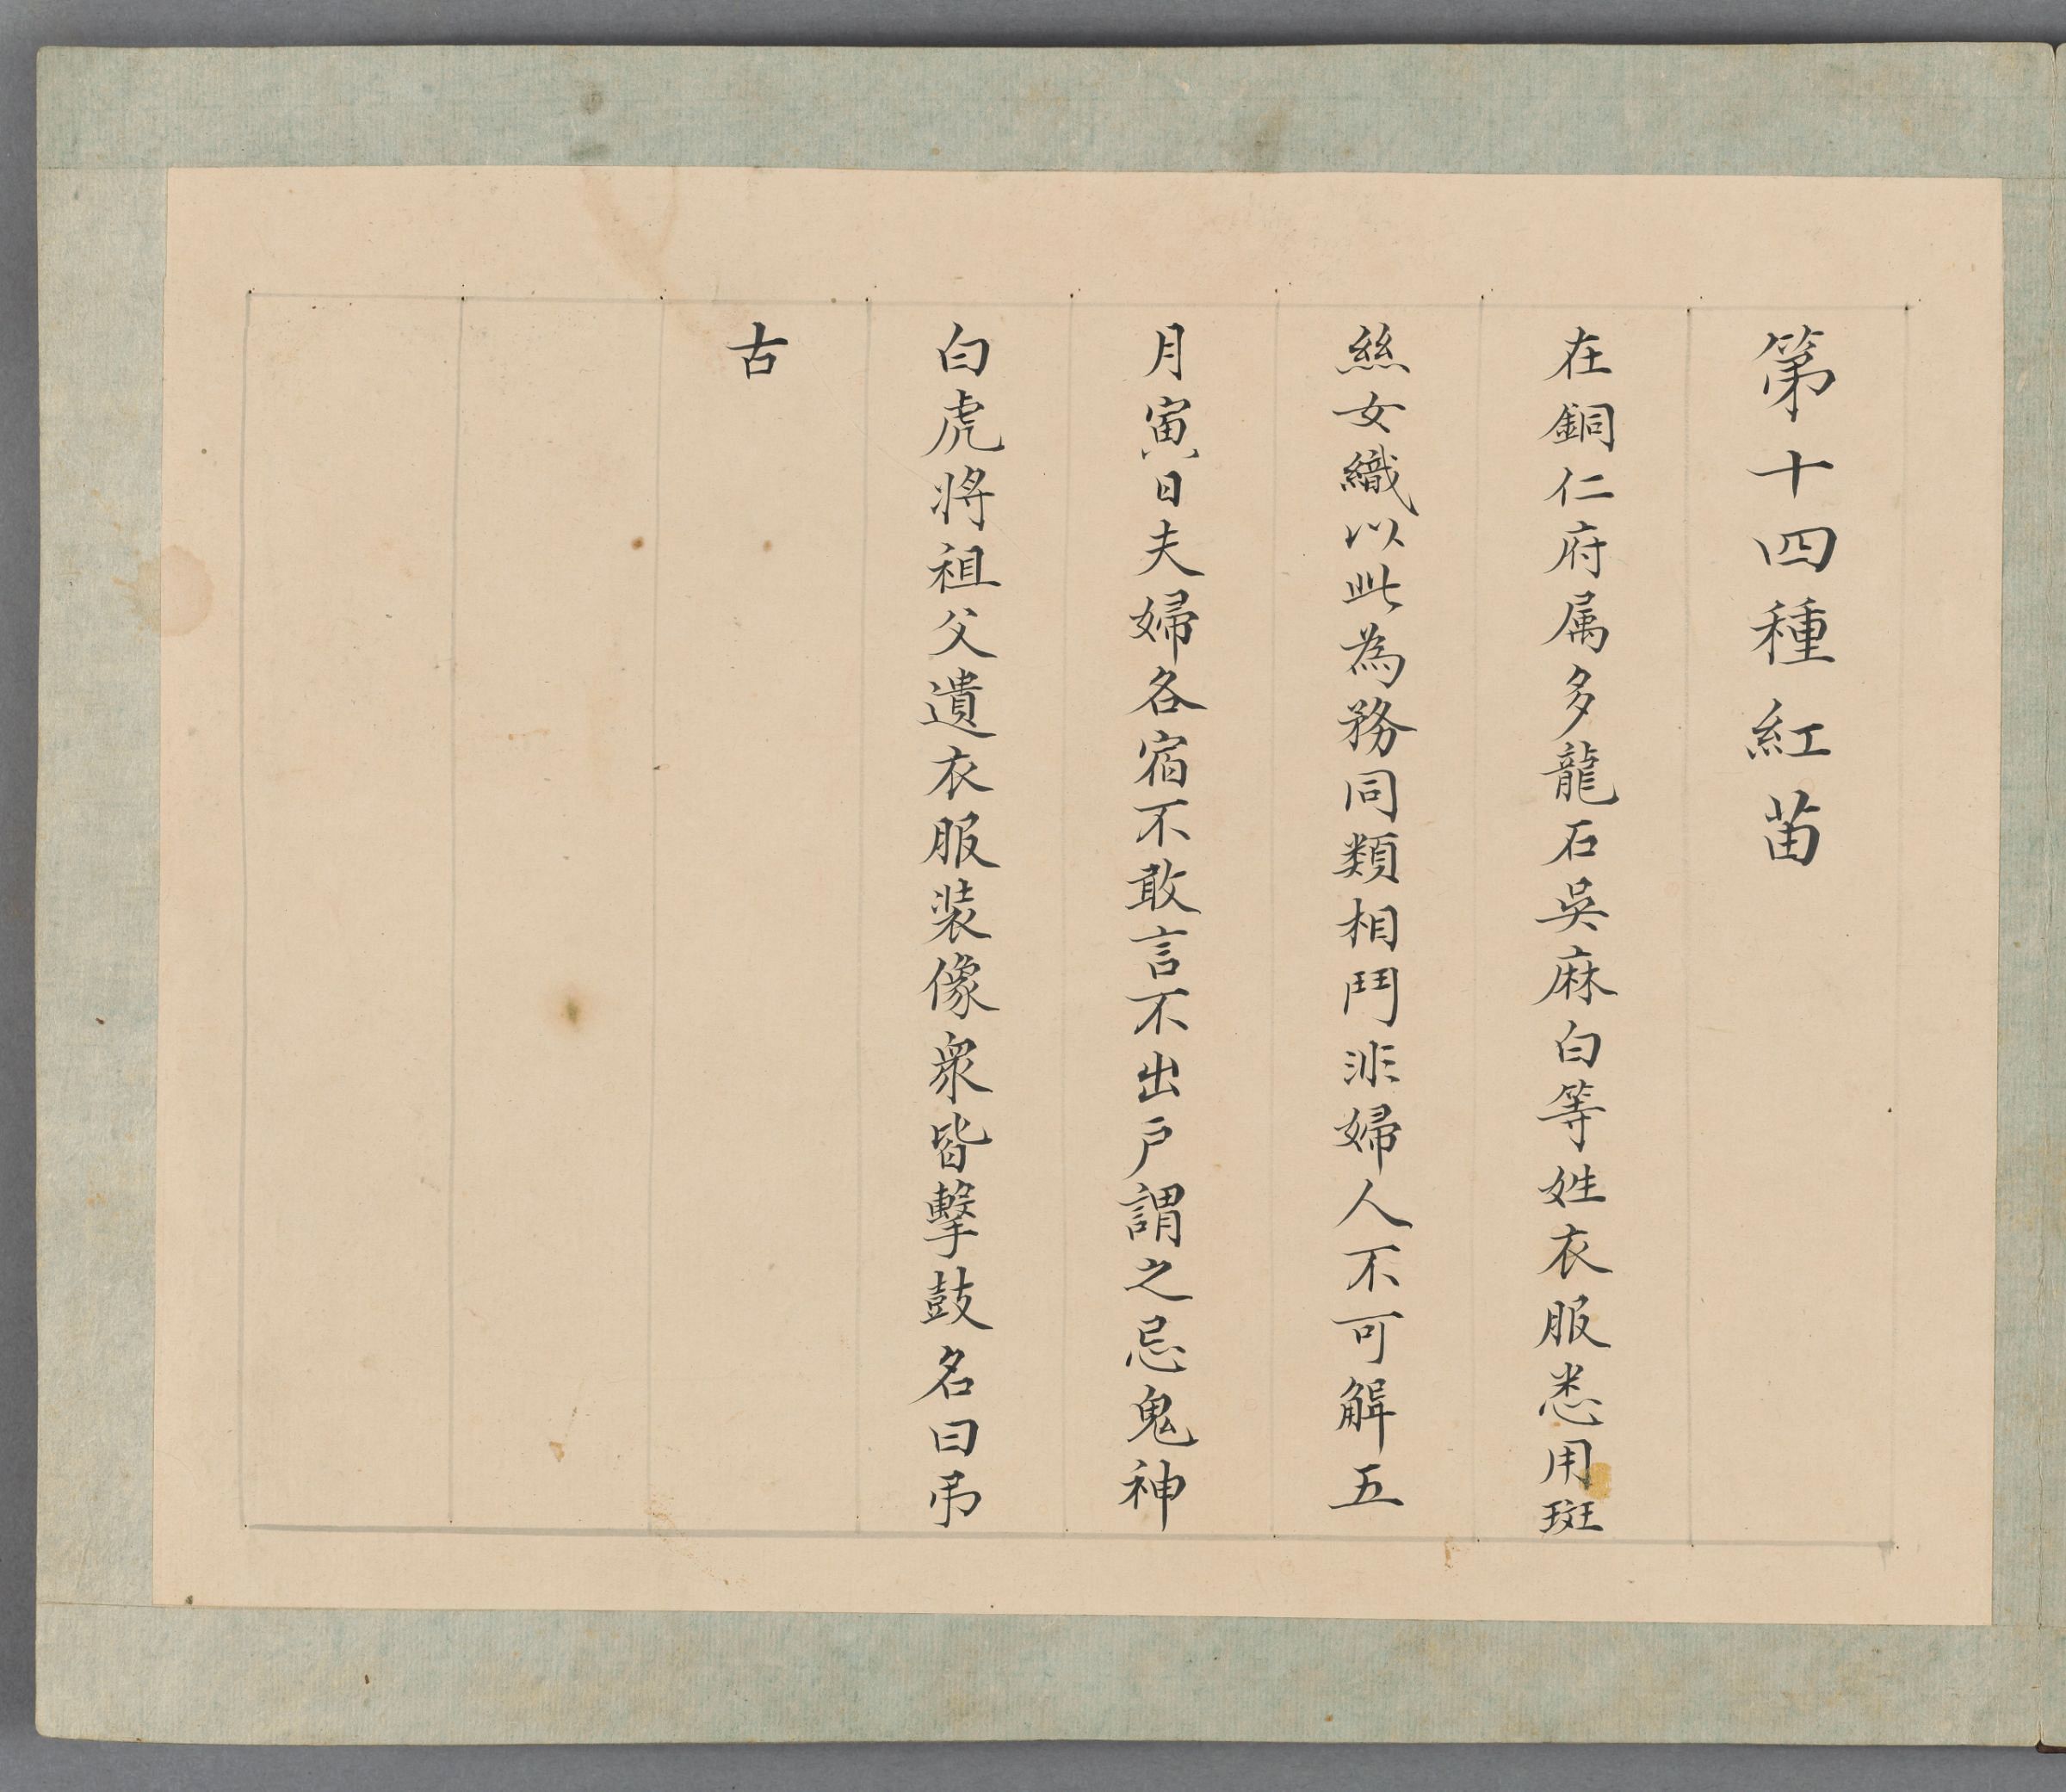 第十四種紅苗
在銅仁府属多龍石吳麻白等姓衣服悉用斑
絲女織以此為務同類相鬥非婦人不可解五
月寅日夫婦各宿不敢言不出戶謂之忌鬼神
白虎將祖父遺衣服装像衆皆擊鼓名曰弔
古